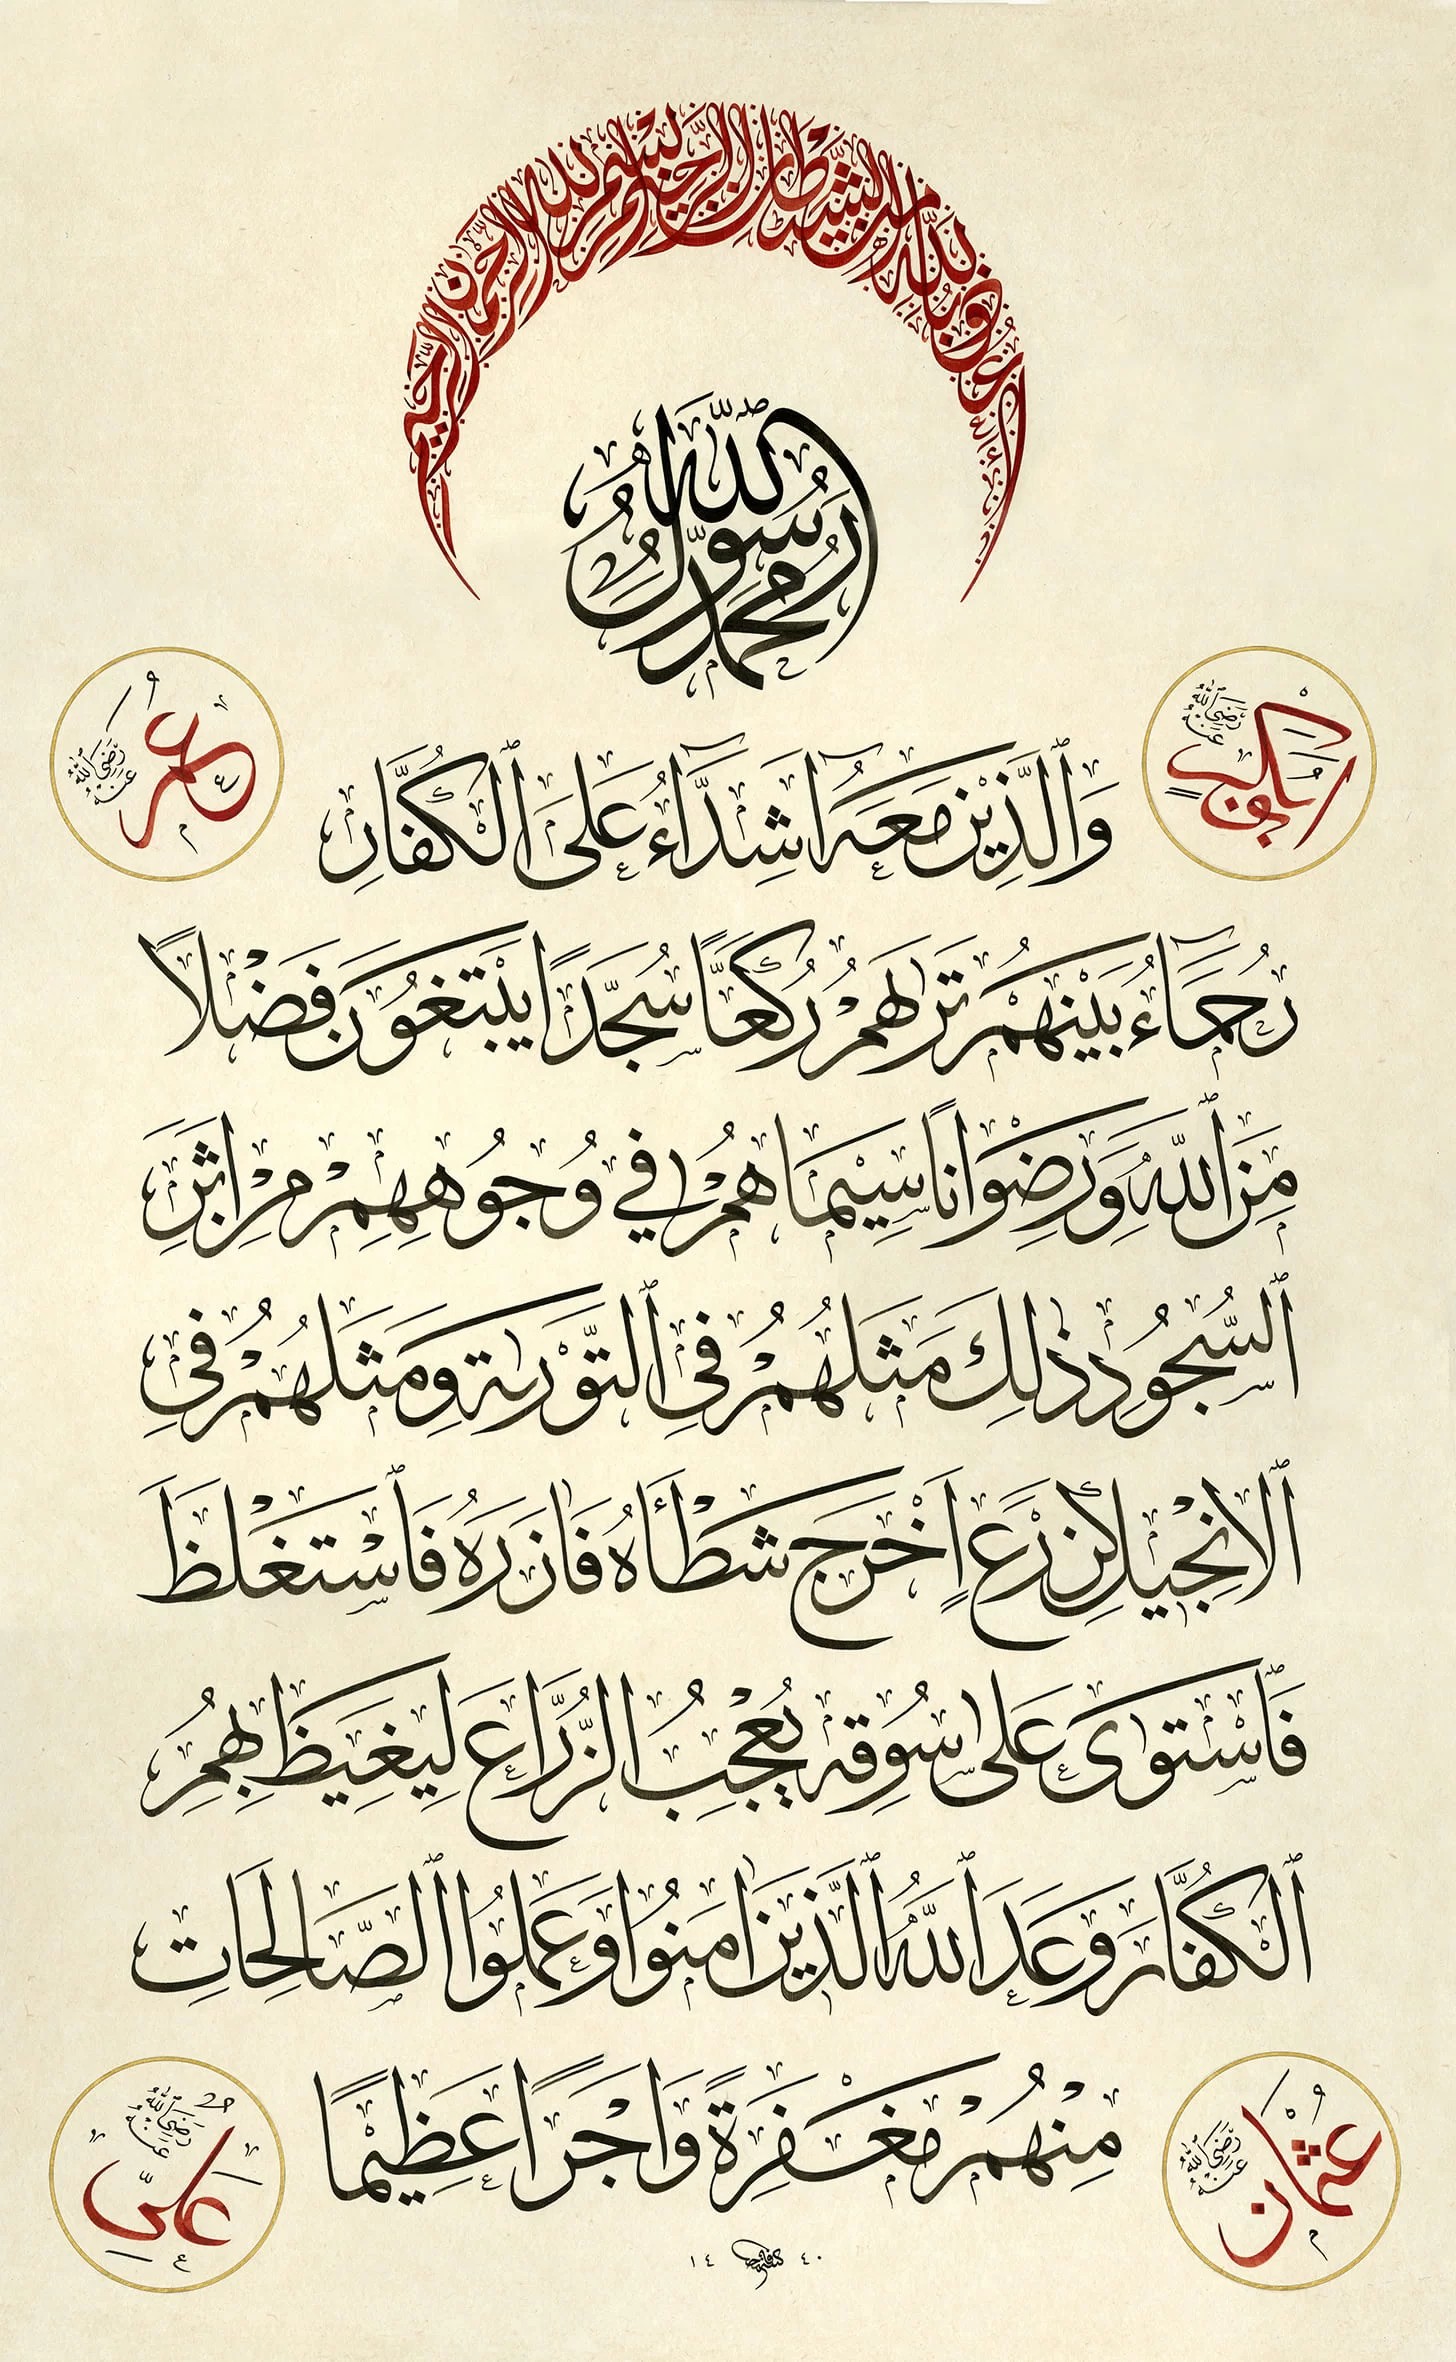 أعوذ بالله من الشيطان الرجيم بسم الله الرحمن الرحيم
محمد رسول الله
أبو بكر رضي الله عنه
عمر رضي الله عنه
وَالَّذِينَ مَعَهُ اَشِدَّآءُ عَلَى ٱلْكُفَّارِ
رُحَمَآءُ بَيْنَهُمْ تَرٰيهُمْ رُكَّعًا سُجَّدًا يَبْتَغُونَ فَضْلًا
مِنَ ٱللّٰهِ وَرِضْوَانًا سِيمَاهُمْ فِي وُجُوهِهِمْ مِنْ اَثَرِ
ٱلسُّجُودِ ذٰلِكَ مَثَلُهُمْ فِي ٱلتَّوْرٰيةِ وَمَثَلُهُمْ فِي
ٱلْاِنْجِيلِ كَزَرْعٍ اَخْرَجَ شَطْأَهُ فَاٰزَرَهُ فَٱسْتَغْلَظَ
فَٱسْتَوٰى عَلٰى سُوقِهِ يُعْجِبُ الزُّرَّاعَ لِيَغِيظَ بِهِمُ
ٱلْكُفَّارَ وَعَدَ ٱللّٰهُ ٱلَّذِينَ اٰمَنُوا وَعَمِلُوا ٱلصَّالِحَاتِ
مِنْهُمْ مَغْفِرَةً وَاَجْرًا عَظِيمًا
عثمان رضي الله عنه
علي رضي الله عنه
١٤ ٤٠